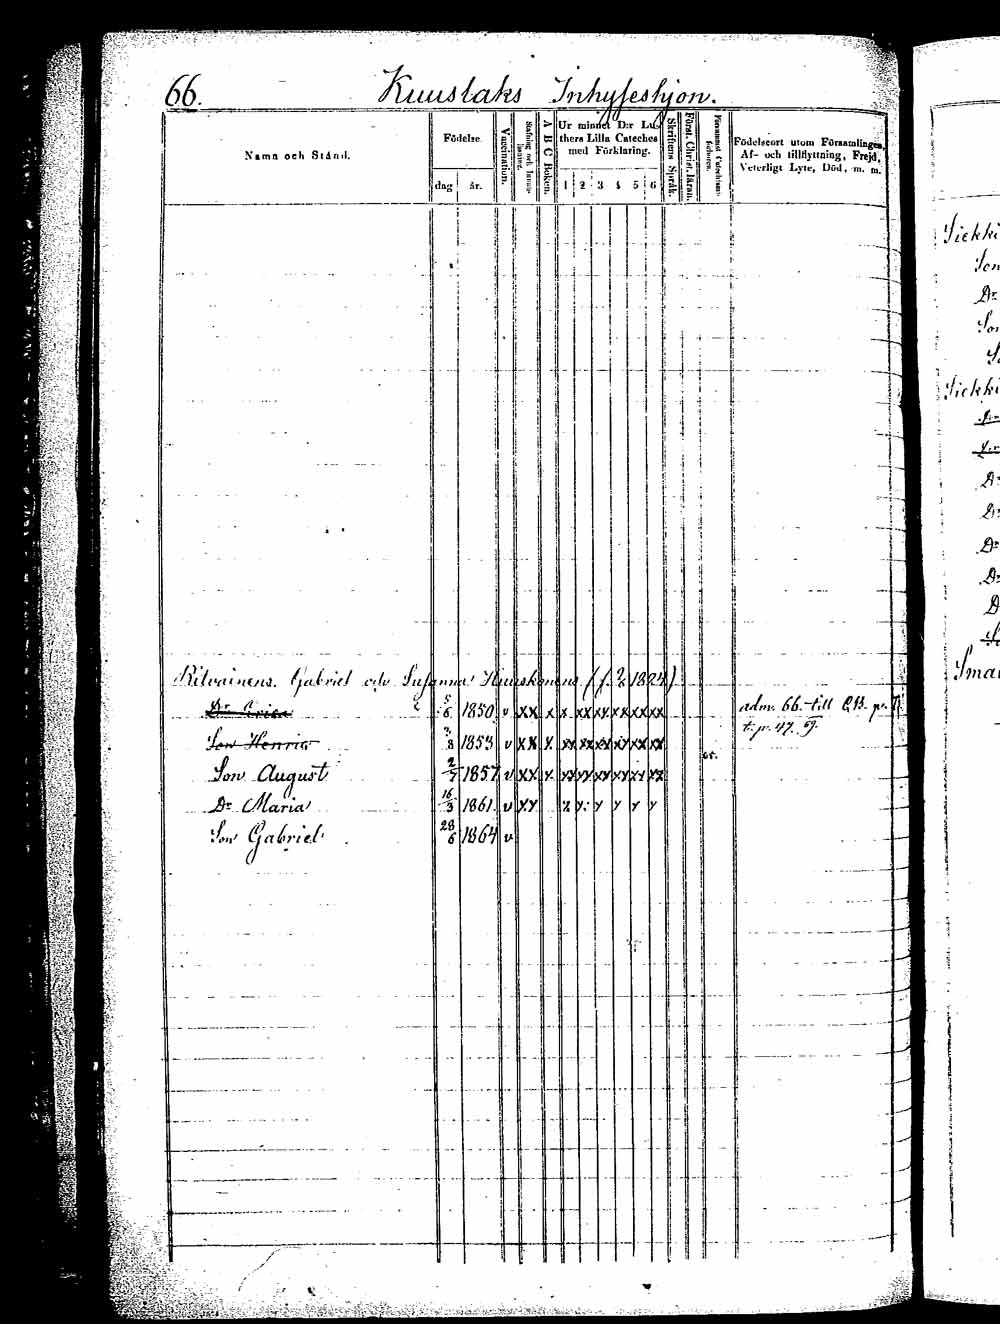 66.
Kuuslaks Inhyseshjon.
Namn och Stånd.
Födelse
dag
år.
Vaccination.
A B C Boken.
Ur minnet D:r Lu-
thers Lilla Cateches
med Förklaring.
1 2 3 4 5 6
Skriftens Språk.
Först. Christ. läran.
Födelseort utom Församlingen,
Af- och tillflyttning, Frejd,
Veterligt Lyte, Död, m. m.
Ritvainens. Gabriel och Susanna Kuuskonens (f. 2/2 1824)
Dr Erica 5/6 1850 v xx x x xx xx xx xx xx adm. 66. till
Son Henric 3/8 1853 v xx x xx xx xx xx xx xx t. p. 47. 69.
65.
Son August 2/7 1857 v xx x xx xx xx xx xx xx
Dr Maria 16/3 1861 v xx x x x x x x
Son Gabriel 28/6 1864 v
Siekki
Son
Dr
Son
Siekki
Dr
Dr
Dr
Dr
Smal